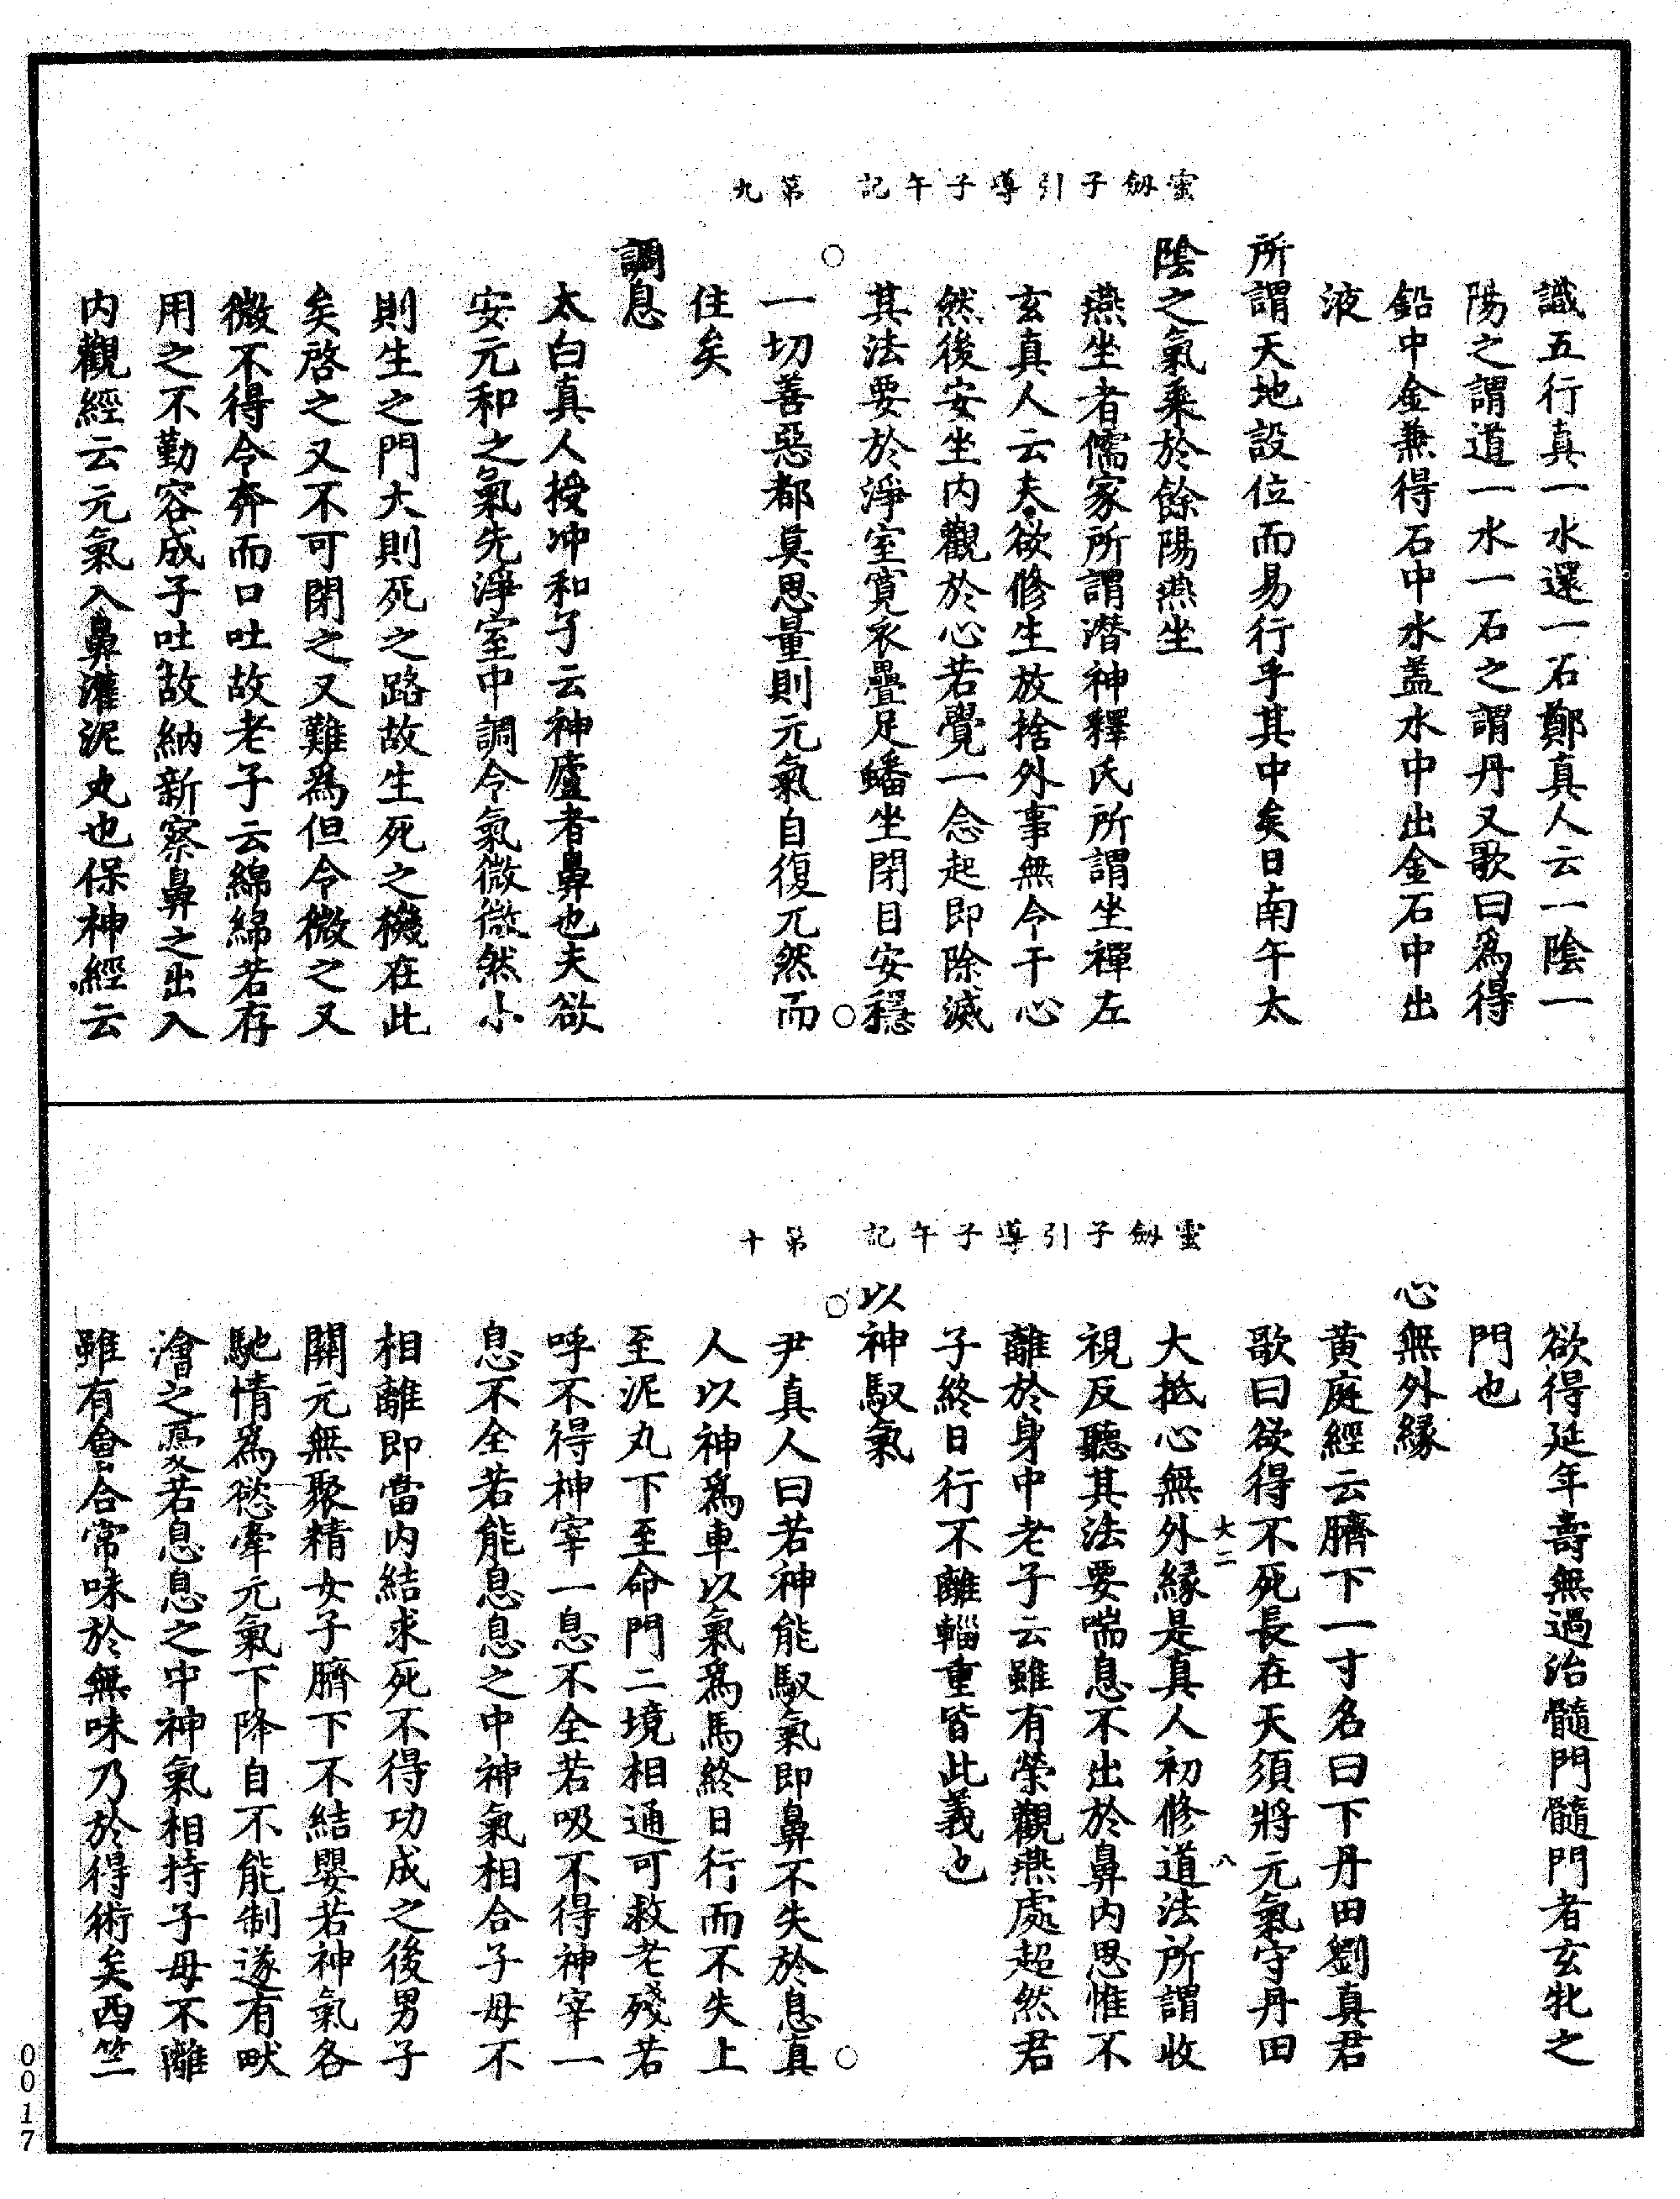 靈劒子引導子午記　第九
識五行真一水還一石鄭真人云一陰一
陽之謂道一水一石之謂丹又歌曰為得
鉛中金兼得石中水盖水中出金石中出
液
所謂天地設位而易行乎其中矣日南午太
陰之氣乘於餘陽燕坐
燕坐者儒家所謂潜神釋氏所謂坐禪左
玄真人云夫欲修生放捨外事無令干心
然後安坐内觀於心若覺一念起即除滅
其法要於淨室寛衣疊足蟠坐閉目安穩
一切善惡都莫思量則元氣自復兀然而
住矣
調息
太白真人授冲和子云神廬者鼻也夫欲
安元和之氣先淨室中調令氣微微然小
則生之門大則死之路故生死之機在此
矣啓之又不可閉之又難爲但令微之又
微不得令奔而口吐故老子云綿綿若存
用之不勤容成子吐故納新察鼻之出入
内觀經云元氣入鼻灌泥丸也保神經云
靈劒子引導子午記　第十
欲得延年壽無過治髓門髓門者玄牝之
門也
心無外緣
黄庭經云臍下一寸名曰下丹田劉真君
歌曰欲得不死長在天須將元氣守丹田
大二　八
大抵心無外緣是真人初修道法所謂收
視反聽其法要喘息不出於鼻内思惟不
離於身中老子云雖有榮觀燕處超然君
子終日行不離輜重皆此義也
以神馭氣
尹真人曰若神能馭氣即鼻不失於息真
人以神爲車以氣爲馬終日行而不失上
至泥丸下至命門二境相通可救老殘若
呼不得神宰一息不全若吸不得神宰一
息不全若能息息之中神氣相合子母不
相離即當内結求死不得功成之後男子
關元無聚精女子臍下不結嬰若神氣各
馳情爲慾牽元氣下降自不能制遂有畎
澮之憂若息息之中神氣相持子母不離
雖有會合常味於無味乃於得術矣西竺
0017